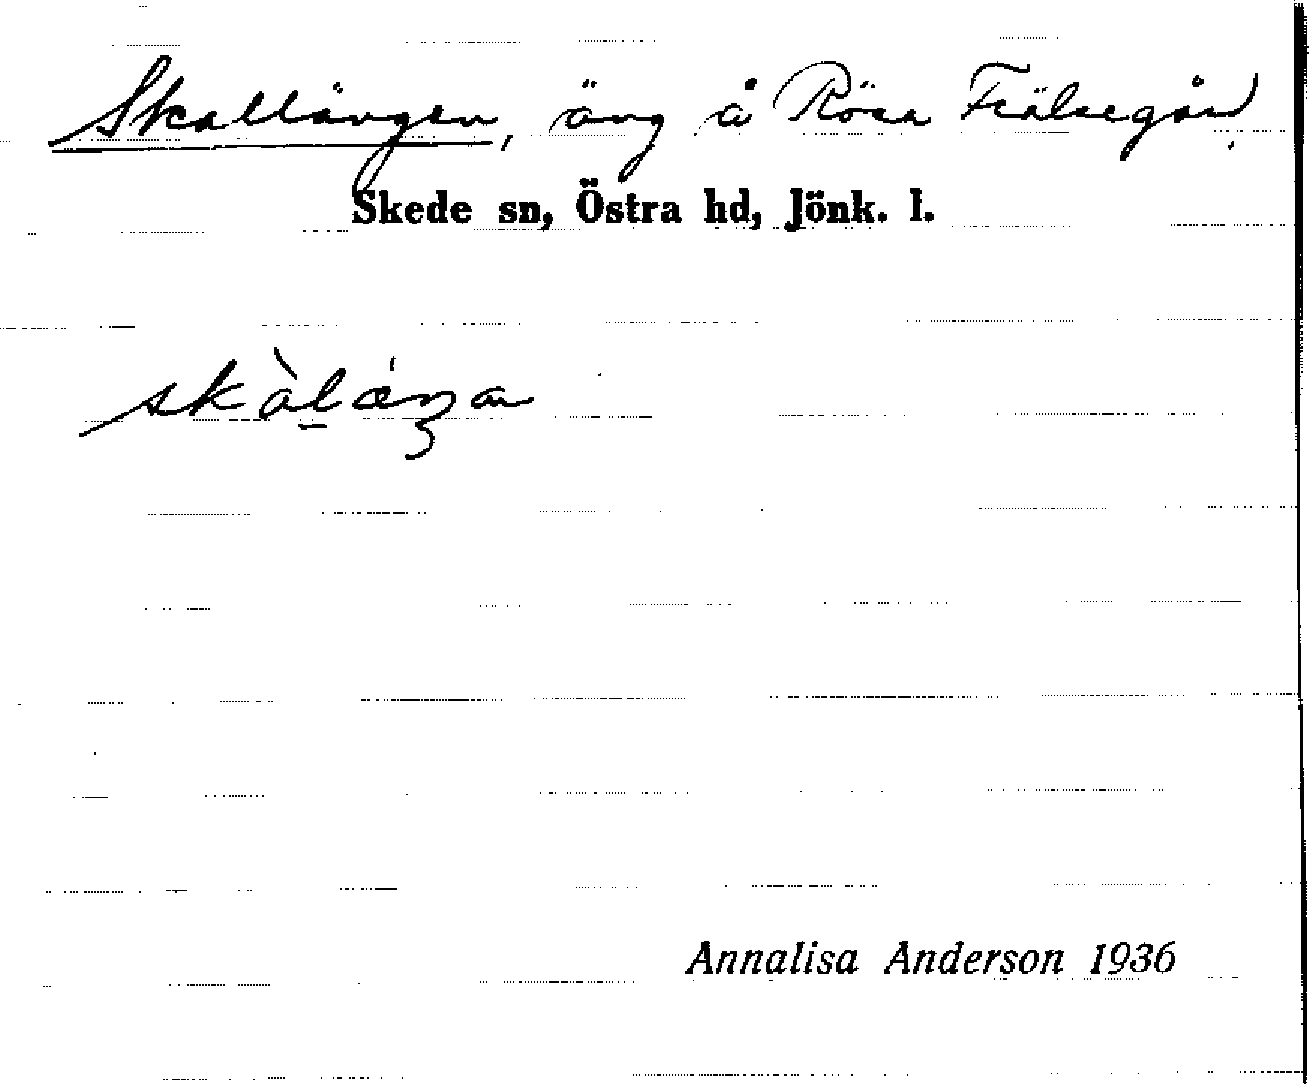 Skallängen, äng å Rösa Frälsegård.
Skede sn, Östra hd, Jönk. l.
Annalisa Anderson 1936